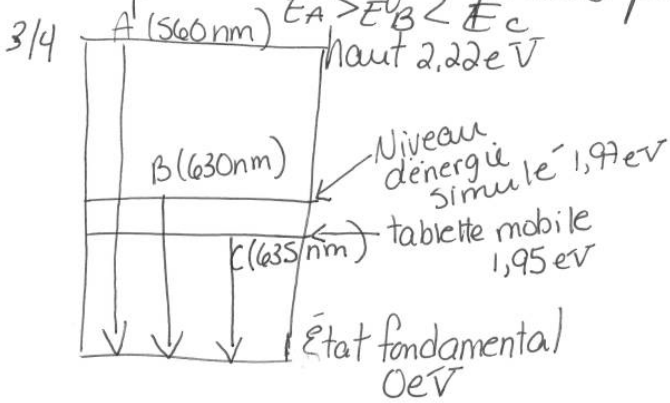 3/4
A (560nm) EA > EB < Ec
haut 2,22eV
B (630nm)
Niveau
dénergie
simulé 1,97eV
C (635nm)
tablette mobile
1,95 eV
État fondamental
0eV